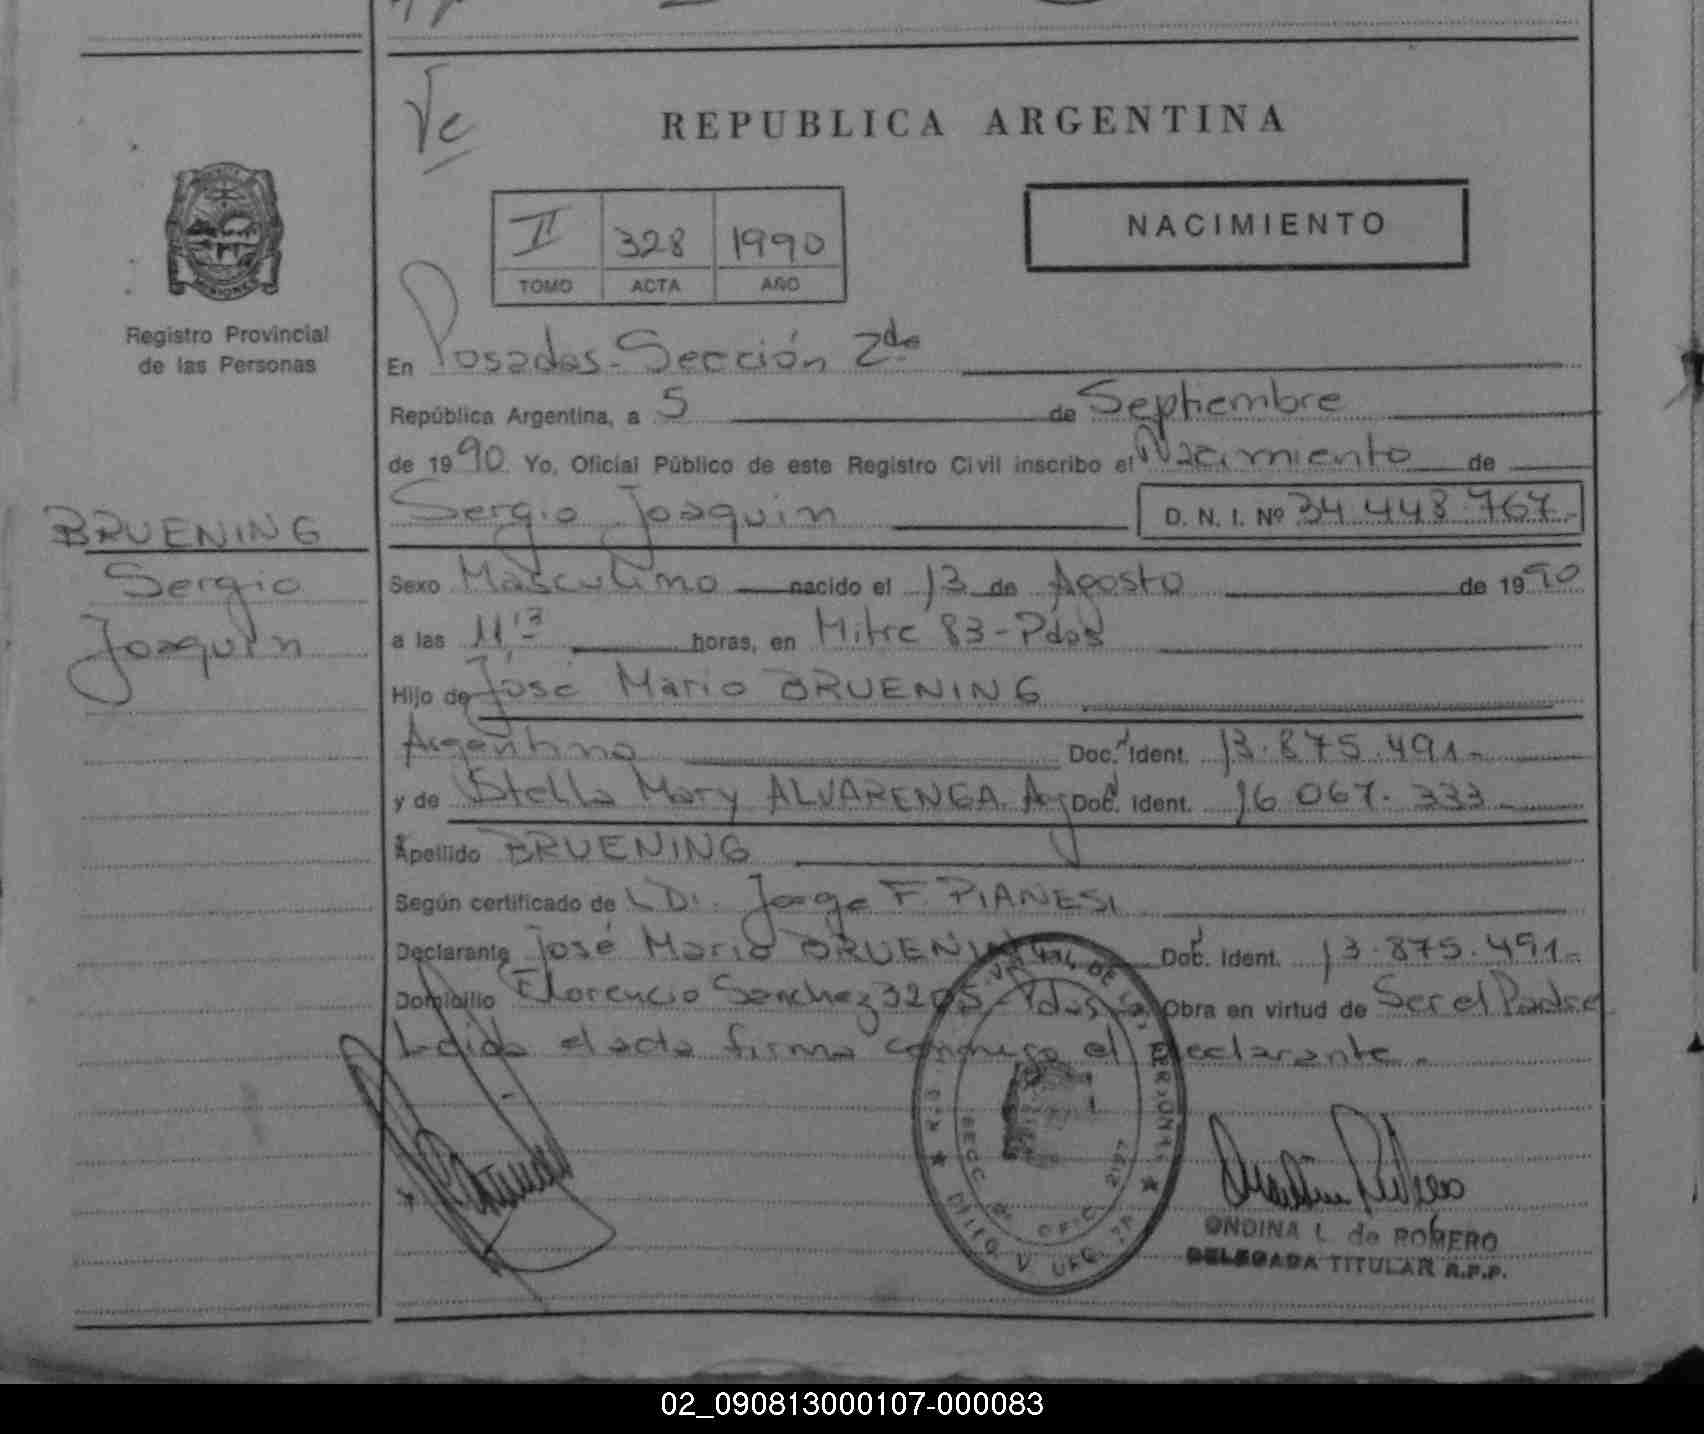 Ve
REPUBLICA ARGENTINA
NACIMIENTO
II 328 1990
TOMO ACTA AÑO
Registro Provincial
de las Personas
En Posadas - Sección 2da
República Argentina, a 5 de Septiembre
de 1990 Yo, Oficial Público de este Registro Civil inscribo el Nacimiento de
Sergio Joaquin D. N. I. Nº 34.448.767-
BRUENING
Sergio
Joaquin
Sexo Masculino nacido el 13 de Agosto de 1990
a las 11,13 horas, en Mitre 83-Pdas
Hijo de José Mario BRUENING
Argentino Doc. Ident. 13.875.491-
y de Stella Mary ALVARENGA. Arg Doc. Ident. 16 067.333-
Apellido BRUENING
Según certificado de Jorge F. PIANESI
Declarante José Mario BRUENING Doc. Ident. 13.875.491-
Domicilio Florencio Sanchez 3205-Pdas Obra en virtud de Ser el Padre
Leida el acta firma conmigo el Declarante.
SECC. OFIC.
ONDINA L. de ROMERO
DELEGADA TITULAR R.P.P.
02_090813000107-000083